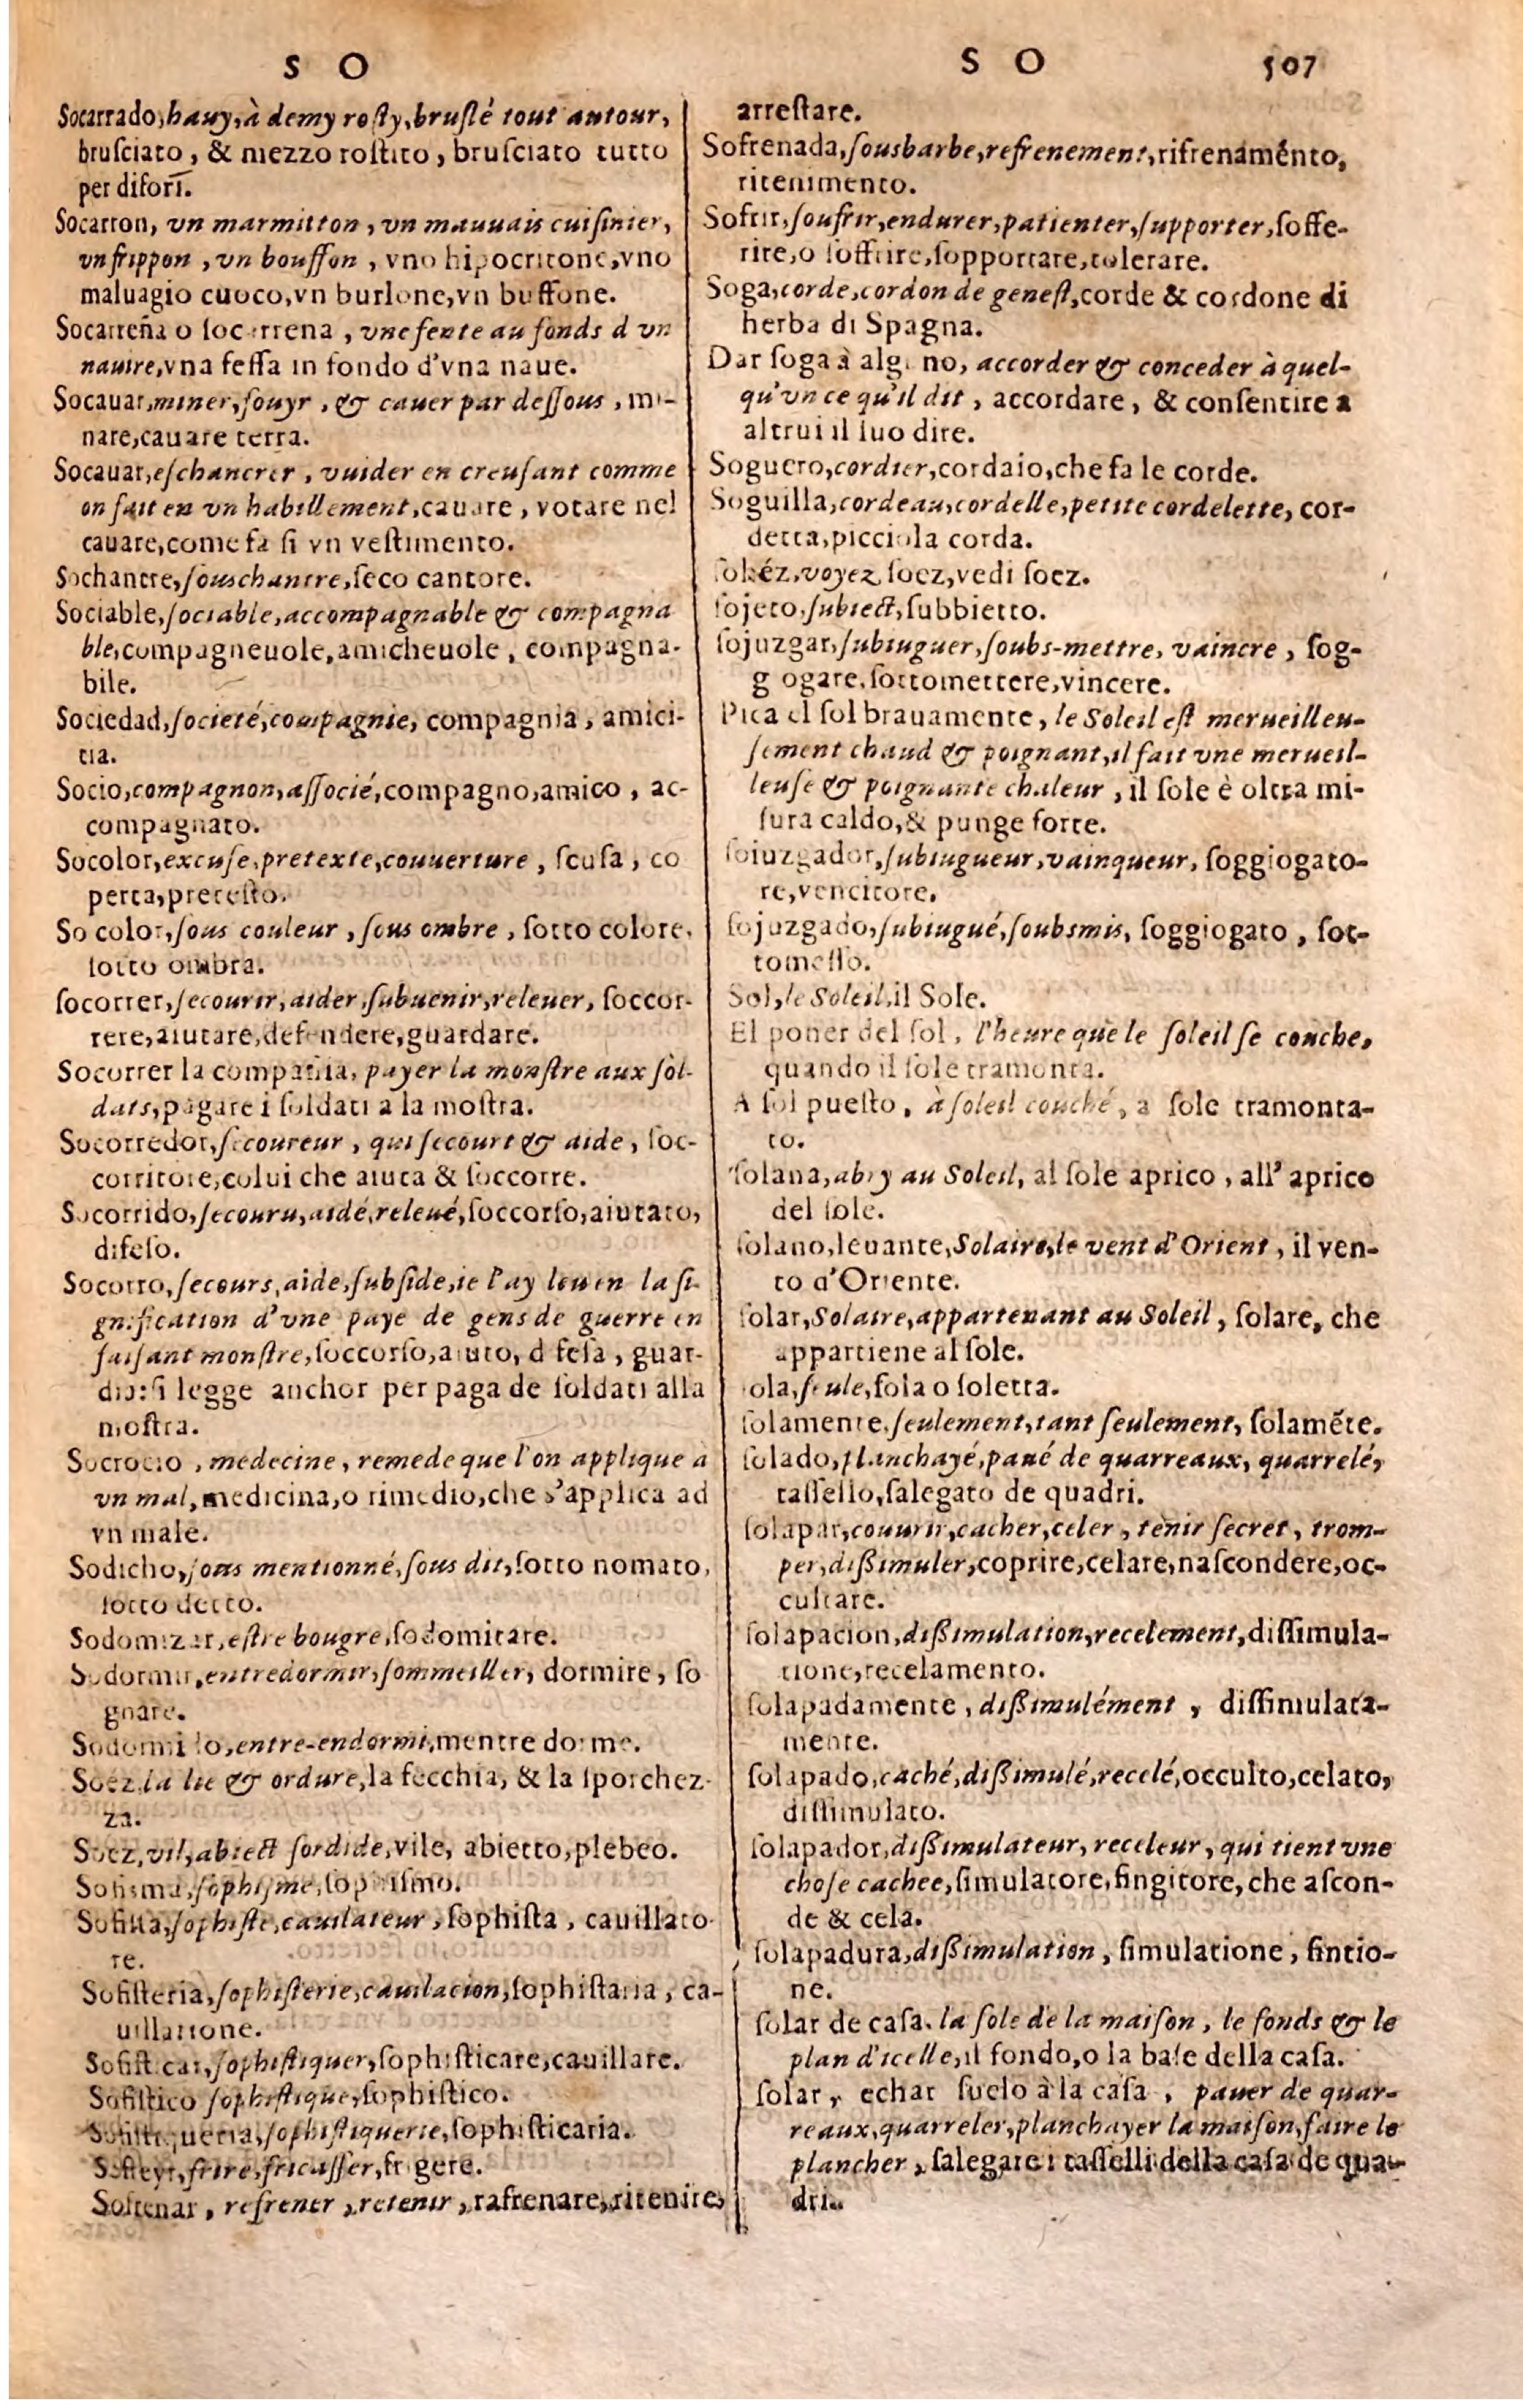 S O
Socarrado, hauy, à demy rosty, bruslé tout autour,
brusciato, & mezzo rostito, brusciato tutto
per difori.
Socarron, vn marmitton, vn mauuais cuisinier,
vn frippon, vn bouffon, vno hipocritone, vno
maluagio cuoco, vn burlone, vn buffone.
Socarreña o socarrena, vne fente au fonds d vn
nauire, vna fessa in fondo d'vna naue.
Socauar, miner, fouyr, & cauer par dessous, mi-
nare, cauare terra.
Socauar, eschancrer, vuider en creusant comme
on fait en vn habillement, cauare, votare nel
cauare, come fa si vn vestimento.
Sochantre, souschantre, seco cantore.
Sociable, sociable, accompagnable & compagna
ble, compagneuole, amicheuole, compagna-
bile.
Sociedad, societé, compagnie, compagnia, amici-
tia.
Socio, compagnon, associé, compagno, amico, ac-
compagnato.
Socolor, excuse, pretexte, couuerture, scusa, co
perta, pretesto.
So color, sous couleur, sous ombre, sotto colore,
sotto ombra.
socorrer, secourir, aider, subuenir, releuer, soccor-
rere, aiutare, defendere, guardare.
Socorrer la compañia, payer la monstre aux sol-
dats, pagare i soldati a la mostra.
Socorredor, secoureur, qui secourt & aide, soc-
corritore, colui che aiuta & soccorre.
Socorrido, secouru, aidé, releué, soccorso, aiutato,
difeso.
Socorro, secours, aide, subside, ie l'ay leu en la si-
gnification d'vne paye de gens de guerre en
faisant monstre, soccorso, aiuto, d fesa, guar-
dia: si legge anchor per paga de soldati alla
mostra.
Socrocio, medecine, remede que l'on applique à
vn mal, medicina, o rimedio, che s'applica ad
vn male.
Sodicho, sous mentionné, sous dit, sotto nomato,
sotto detto.
Sodomizar, estre bougre, sodomitare.
Sodormir, entredormir, sommeiller, dormire, so
gnare.
Sodormi do, entre-endormi, mentre dorme.
Soéz, la lie & ordure, la fecchia, & la sporchez-
za.
Soez, vil, abiect sordide, vile, abietto, plebeo.
Sofisma, sophisme, sophismo.
Sofista, sophiste, cauilateur, sophista, cauillato-
re.
Sofisteria, sophisterie, cauilacion, sophistaria, ca-
uillatione.
Sofisticar, sophistiquer, sophisticare, cauillare.
Sofistico sophistique, sophistico.
Sofistiqueria, sophistiquerie, sophisticaria.
Sofreyr, frire, fricasser, frigere.
Sofrenar, refrener, retenir, rafrenare, ritenire,
S O 507
arrestare.
Sofrenada, sousbarbe, refrenement, rifrenamẽto,
ritenimento.
Sofrir, soufrir, endurer, patienter, supporter, soffe-
rire, o soffrire, sopportare, tolerare.
Soga, corde, cordon de genest, corde & cordone di
herba di Spagna.
Dar soga à alguno, accorder & conceder à quel-
qu'vn ce qu'il dit, accordare, & consentire a
altrui il suo dire.
Soguero, cordier, cordaio, che fa le corde.
Soguilla, cordeau, cordelle, petite cordelette, cor-
detta, picciola corda.
sohéz, voyez soez, vedi soez.
sojeto, subiect, subbietto.
sojuzgar, subiuguer, soubs-mettre, vaincre, sog-
g ogare, sottomettere, vincere.
Pica el sol brauamente, le Soleil est merueilleu-
sement chaud & poignant, il fait vne merueil-
leuse & poignante chaleur, il sole è oltra mi-
sura caldo, & punge forte.
soiuzgador, subiugueur, vainqueur, soggiogato-
re, vencitore.
sojuzgado, subiugué, soubsmis, soggiogato, sot-
tomesso.
Sol, le Soleil, il Sole.
El poner del sol, l'heure que le soleil se couche,
quando il sole tramonta.
A sol puesto, à soleil couché, a sole tramonta-
to.
solana, abry au Soleil, al sole aprico, all' aprico
del sole.
solano, leuante, Solaire, le vent d'Orient, il ven-
to d'Oriente.
solar, Solaire, appartenant au Soleil, solare, che
appartiene al sole.
sola, seule, sola o soletta.
solamente, seulement, tant seulement, solamẽte.
solado, planchayé, paué de quarreaux, quarrelé,
tassello, salegato de quadri.
solapar, couurir, cacher, celer, tenir secret, trom-
per, dissimuler, coprire, celare, nascondere, oc-
cultare.
solapacion, dissimulation, recelement, dissimula-
tione, recelamento.
solapadamente, dissimulément, dissimulata-
mente.
solapado, caché, dissimulé, recelé, occulto, celato,
dissimulato.
solapador, dissimulateur, receleur, qui tient vne
chose cachee, simulatore, fingitore, che ascon-
de & cela.
solapadura, dissimulation, simulatione, fintio-
ne.
solar de casa, la sole de la maison, le fonds & le
plan d'icelle, il fondo, o la base della casa.
solar, echar suelo à la casa, pauer de quar-
reaux, quarreler, planchayer la maison, faire le
plancher, salegare i tasselli della casa de qua-
dri.